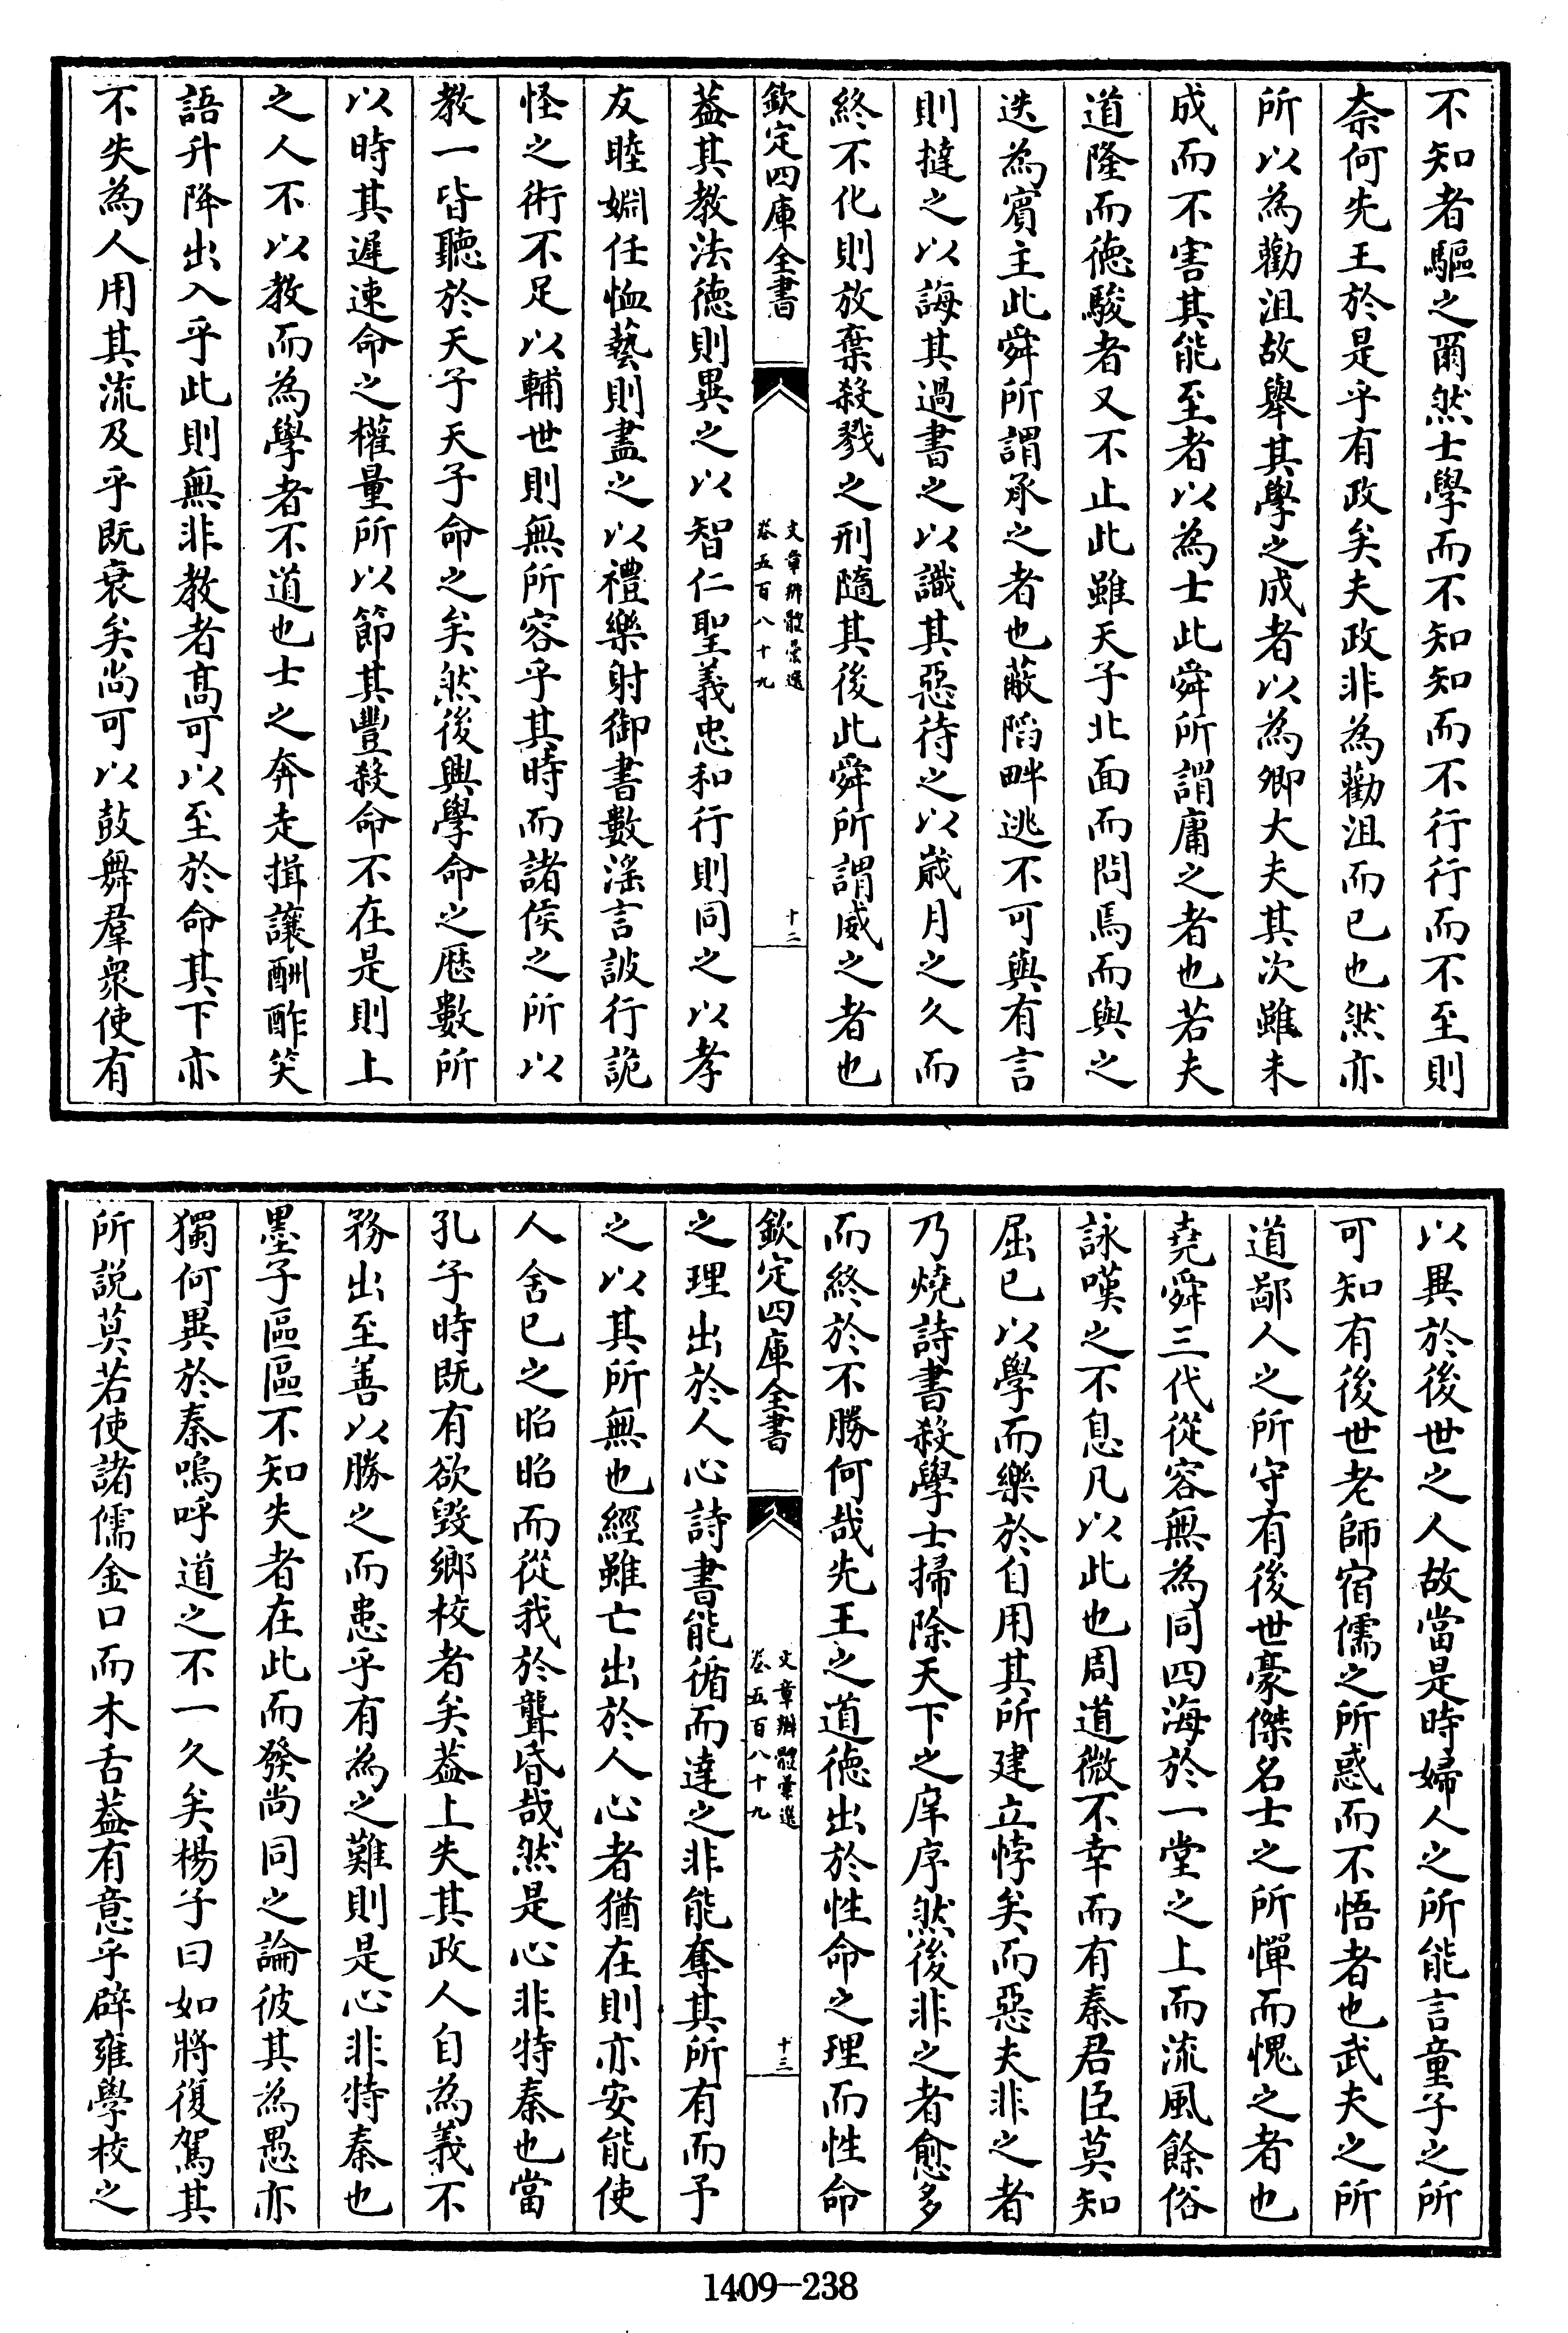 不知者驅之爾然士學而不知知而不行行而不至則
奈何先王於是乎有政矣夫政非為勸沮而已也然亦
所以為勸沮故舉其學之成者以為卿大夫其次雖未
成而不害其能至者以為士此舜所謂庸之者也若夫
道隆而德駿者又不止此雖天子北面而問焉而與之
迭為賓主此舜所謂承之者也蔽陷畔逃不可與有言
則撻之以誨其過書之以識其惡待之以歲月之久而
終不化則放棄殺戮之刑隨其後此舜所謂威之者也
欽定四庫全書
文章辨體彙選
卷五百八十九
十二
葢其教法德則異之以智仁聖義忠和行則同之以孝
友睦婣任恤藝則盡之以禮樂射御書數淫言詖行詭
怪之術不足以輔世則無所容乎其時而諸侯之所以
教一皆聽於天子天子命之矣然後興學命之厯數所
以時其遲速命之權量所以節其豐殺命不在是則上
之人不以教而為學者不道也士之奔走揖讓酬酢笑
語升降出入乎此則無非教者髙可以至於命其下亦
不失為人用其流及乎既衰矣尚可以鼓舞羣衆使有
以異於後世之人故當是時婦人之所能言童子之所
可知有後世老師宿儒之所惑而不悟者也武夫之所
道鄙人之所守有後世豪傑名士之所憚而愧之者也
堯舜三代從容無為同四海於一堂之上而流風餘俗
詠嘆之不息凡以此也周道微不幸而有秦君臣莫知
屈已以學而樂於自用其所建立悖矣而惡夫非之者
乃燒詩書殺學士掃除天下之庠序然後非之者愈多
而終於不勝何哉先王之道德出於性命之理而性命
欽定四庫全書
文章辨體彙選
卷五百八十九
十三
之理出於人心詩書能循而達之非能奪其所有而予
之以其所無也經雖亡出於人心者猶在則亦安能使
人舍已之昭昭而從我於聾昏哉然是心非特秦也當
孔子時既有欲毀鄉校者矣葢上失其政人自為義不
務出至善以勝之而患乎有為之難則是心非特秦也
墨子區區不知失者在此而發尚同之論彼其為愚亦
獨何異於秦嗚呼道之不一久矣楊子曰如將復駕其
所說莫若使諸儒金口而木舌葢有意乎辟雍學校之
1409-238